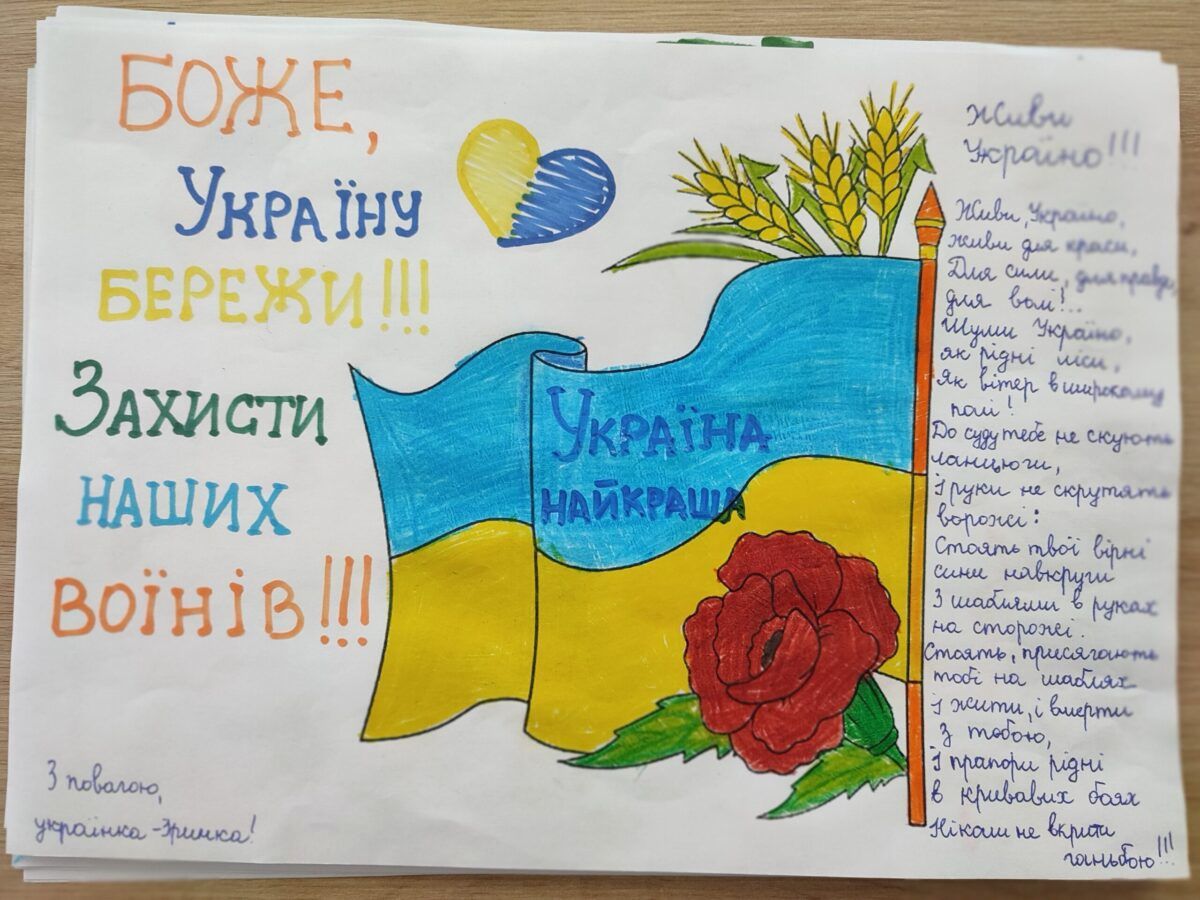 БОЖЕ,
УКРАЇНУ
БЕРЕЖИ!!!
ЗАХИСТИ
НАШИХ
ВОЇНІВ!!!
З повагою,
українка - Іринка!
УКРАЇНА
НАЙКРАЩА
Живи
Україно!!!
Живи, Україно,
живи для краси,
Для сили, для правди,
для волі!..
Шуми Україно,
як рідні ліси,
Як вітер в широкому
полі!
До суду тебе не скують
ланцюги,
І руки не скрутять
ворожі:
Стоять твої вірні
сини навкруги
З шаблями в руках
на сторожі.
Стоять, присягають
тобі на шаблях
І жити, і вмерти
З тобою,
І прапори рідні
в кривавих боях
Ніколи не вкрити
ганьбою!!!